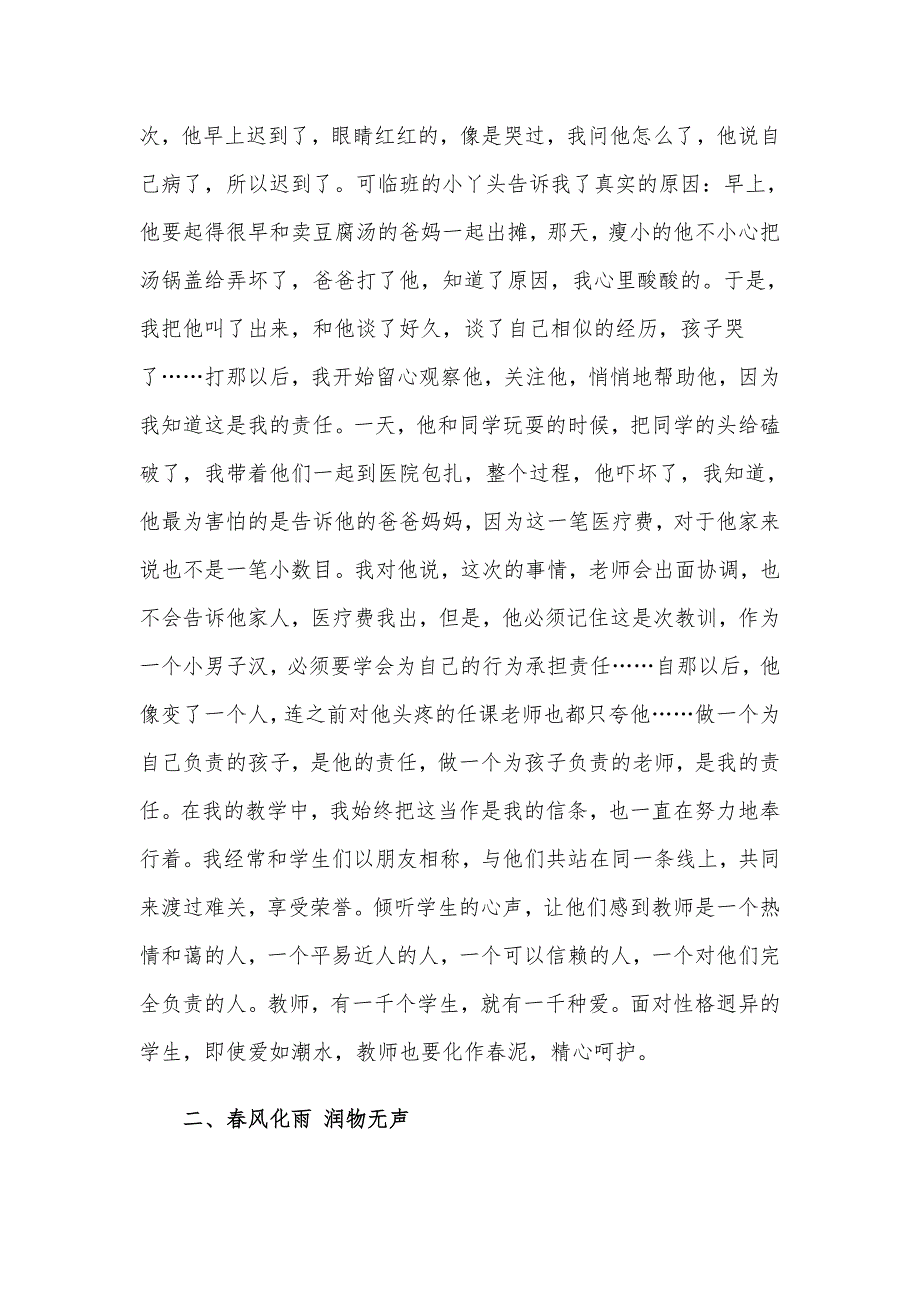 次，他早上迟到了，眼睛红红的，像是哭过，我问他怎么了，他说自
己病了，所以迟到了。可临班的小丫头告诉我了真实的原因：早上，
他要起得很早和卖豆腐汤的爸妈一起出摊，那天，瘦小的他不小心把
汤锅盖给弄坏了，爸爸打了他，知道了原因，我心里酸酸的。于是，
我把他叫了出来，和他谈了好久，谈了自己相似的经历，孩子哭
了……打那以后，我开始留心观察他，关注他，悄悄地帮助他，因为
我知道这是我的责任。一天，他和同学玩耍的时候，把同学的头给磕
破了，我带着他们一起到医院包扎，整个过程，他吓坏了，我知道，
他最为害怕的是告诉他的爸爸妈妈，因为这一笔医疗费，对于他家来
说也不是一笔小数目。我对他说，这次的事情，老师会出面协调，也
不会告诉他家人，医疗费我出，但是，他必须记住这是次教训，作为
一个小男子汉，必须要学会为自己的行为承担责任……自那以后，他
像变了一个人，连之前对他头疼的任课老师也都只夸他……做一个为
自己负责的孩子，是他的责任，做一个为孩子负责的老师，是我的责
任。在我的教学中，我始终把这当作是我的信条，也一直在努力地奉
行着。我经常和学生们以朋友相称，与他们共站在同一条线上，共同
来渡过难关，享受荣誉。倾听学生的心声，让他们感到教师是一个热
情和蔼的人，一个平易近人的人，一个可以信赖的人，一个对他们完
全负责的人。教师，有一千个学生，就有一千种爱。面对性格迥异的
学生，即使爱如潮水，教师也要化作春泥，精心呵护。
二、春风化雨 润物无声